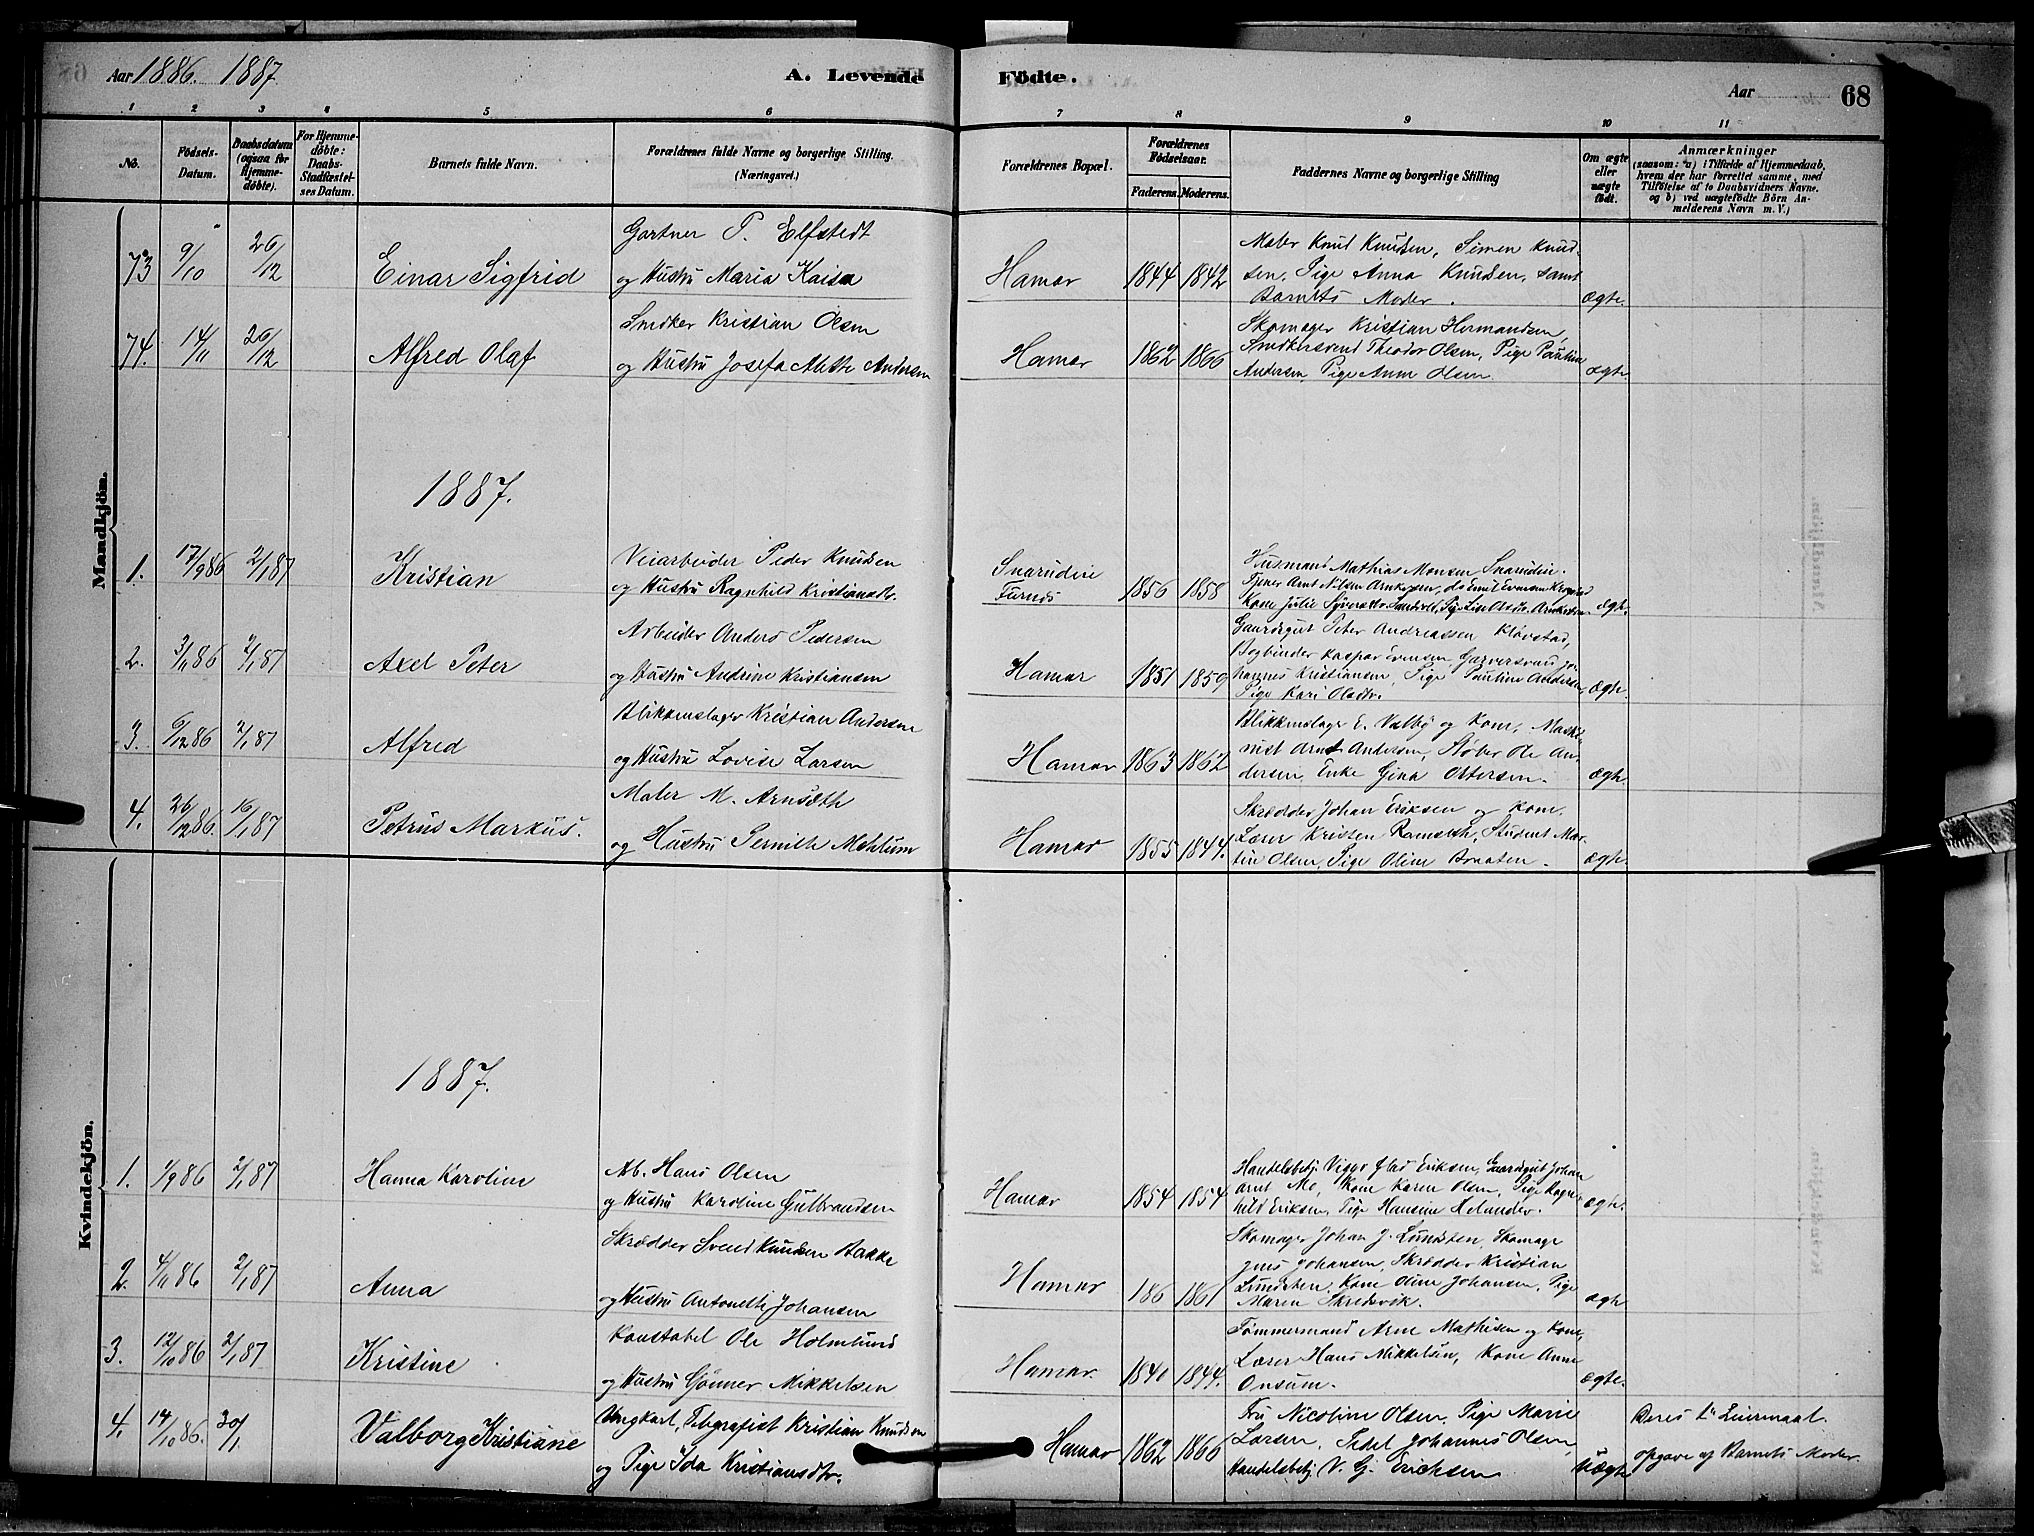 Aar 1886. 1887.
A. Levende
Födte.
Aar
68
1 2 3 4 5 6 7 8 9 10 11
No.
Födsels-Datum.
Daabsdatum (ogsaa for Hjemme-döbte).
For Hjemme-döbte: Daabs-Stadfæstel-ses Datum.
Barnets fulde Navn.
Forældrenes fulde Navne og borgerlige Stilling.
(Næringsvei.)
Forældrenes Bopæl.
Forældrenes Födselsaar.
Faderens. Moderens.
Faddernes Navne og borgerlige Stilling
Om ægte eller uægte födt.
Anmærkninger
(saasom: a) i Tilfælde af Hjemmedaab,
hvem der har forrettet samme, med
Tilföielse af to Daabsvidners Navne.
og b) ved uægtefödte Börn An-
melderens Navn m. V.)
Mandkjön.
73 9/10 26/12 Einar Sigfrid
Gartner P. Elfstedt
og Hustru Maria Kaisa
Hamar 1844 1842
Maler Knud Knudsen, Simen Knud-
sen, Pige Anna Knudsen, samt
Barnets Moder.
ægte.
74. 14/11 26/12 Alfred Olaf
Snedker Kristian Olsen
og Hustru Josefa Alette Andersen
Hamar 1862 1866
Skomager Kristian Hermandsen,
Snedkersvend Theodor Olsen, Pige Pauline
Andersen, Pige Anne Olsen.
ægte.
1887.
1. 17/9 86 2/1 87 Kristian
Veiarbeider Peder Knudsen
og Hustru Ragnhild Kristiansdtr.
Snarudeie
Furnes
1856 1858
Husmand Mathias Monsen Snarudeie.
Tjener Arnt Nilsen
Kone Julie
ægte.
2. 3/11 86 2/1 87 Axel Peter
Arbeider Anders Pedersen
og Hustru Andrine Kristiansen
Hamar 1851 1859
Gaardsgut Peter Andreassen Kløvstad,
Bogbinder Kaspar Evensen, Garversvend Jo-
hannes Kristiansen, Pige Pauline Andersen,
Pige Kari Olsdtr.
ægte.
3. 6/12 86 2/1 87 Alfred
Blikkenslager Kristian Andersen
og Hustru Lovise Larsen
Hamar 1863 1862
Blikkenslager E. Valby og Kone, Maski-
nist Arnt Andersen, Støber Ole An-
dersen, Enke Gina Ottersen.
ægte.
4. 26/12 86. 16/1 87 Petrus Markus.
Maler M. Arnsæth
og Hustru Pernille Mehlum
Hamar 1855 1844.
Skrædder Johan Eriksen og Kone.
Lærer Kristen Ramseth, Student Mar-
tin Olsen, Pige Oline Braaten.
ægte.
Kvindekjön.
1887.
1. 1/9 86 2/1 87 Hanna Karoline
Ab. Hans Olsen
og Hustru Karoline Gulbrandsen
Hamar 1854 1854
Handelsbetj. Viggo Eriksen, Gaardsgut Johan
Arnt Mo, Kone Karen Olsen, Pige Ragn-
hild Eriksen, Pige Hansine Melander.
ægte.
2. 4/11 86 2/1 87 Anna
Skrædder Svend Knudsen Bakke
og Hustru Antonette Johansen
Hamar 186 1861
Skomager Johan J. Lundsten, Skomager
Jens Johansen, Skrædder Kristian
Lundsten, Kone Oline Johansen, Pige
Maren Skredsvik.
ægte
3. 12/10 86 2/1 87 Kristine
Konstabel Ole Holmlund
og Hustru Gønner Mikkelsen
Hamar. 1840 1844.
Tømmermand Arne Mathisen og Kone,
Lærer Hans Mikkelsen, Kone Anne
Onsum.
ægte.
4. 14/10 86. 30/1 Valborg Kristiane
Ungkarl, Telegrafist Kristian Knudsen
og Pige Ida Kristiansdtr.
Hamar 1862 1866
Fru Nicoline Olsen, Pige Marie
Larsen, Pedel Johannes Olsen
Handelsbetj. V. G. Erichsen
uægte
Deres 1ste Leiermaal.
opgave af Barnets Moder.